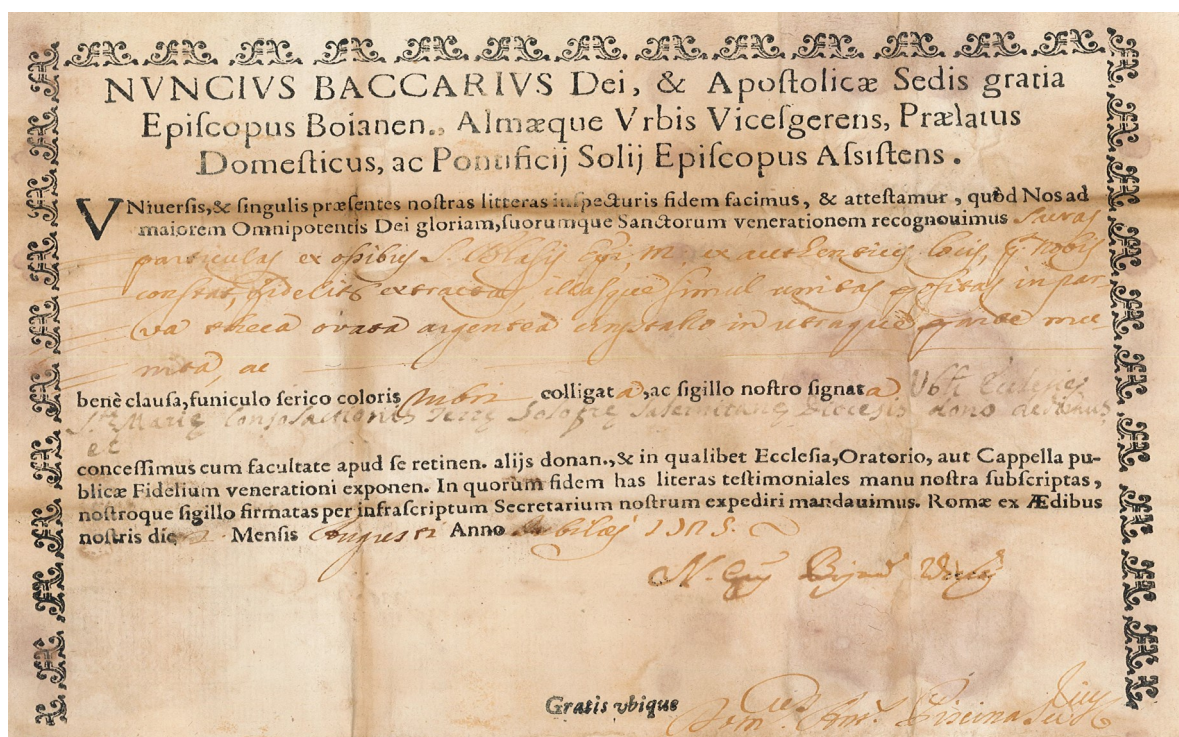 NVNCIVS BACCARIVS Dei, & Apoſtolicæ Sedis gratia
Epiſcopus Boianen., Almæque Vrbis Viceſgerens, Prælatus
Domeſticus, ac Pontificij Solij Epiſcopus Aſsiſtens.
VNiuerſis,& ſingulis præſentes noſtras litteras inſpecturis fidem facimus, & atteſtamur, quòd Nos ad
maiorem Omnipotentis Dei gloriam,ſuorumque Sanctorum venerationem recognouimus Sacras
particulas ex oſsibus S. Blasij Epi, M. ex authenticis locis,
extractas, illasque simul unitas positas in par-
va theca ovata argentea cristallo in utraque parte mu
ac
benè clauſa,funiculo ſerico coloris rubri colligata,ac ſigillo noſtro ſignata
Ste Marię Consolationis Terrę Solofrę Salernitanę Diocesis dono dedimus,
et
conceſſimus cum facultate apud ſe retinen. alijs donan.,& in qualibet Eccleſia,Oratorio, aut Cappella pu-
blicæ Fidelium venerationi exponen. In quorum fidem has literas teſtimoniales manu noſtra ſubſcriptas,
noſtroque ſigillo firmatas per infraſcriptum Secretarium noſtrum expediri mandauimus. Romæ ex Ædibus
noſtris die 2 Menſis Augusti Anno Jubilęi 1725.
Gratis vbique